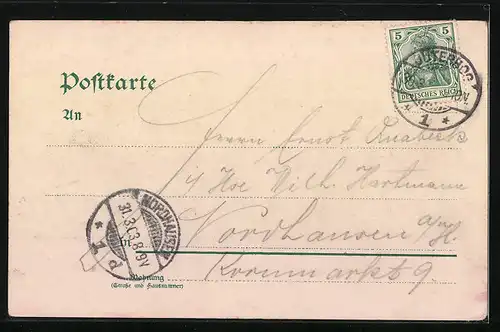 5
DEUTSCHES REICH
JÜTERBOG
1
Postkarte
An
Herrn Ernst
Wilh. Hartmann
Nordhausen a/H.
Kornmarkt 9
NORDHAUSEN
31.3.03.8-9V
* 1
Wohnung
(Straße und Hausnummer)